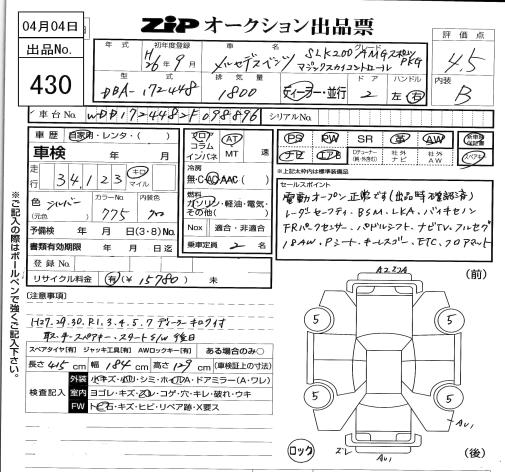 04月04日
ZIP オークション出品票
出品No.
430
年式 初年度登録 車名 グレード
H26年9月 メルセデスベンツ SLK200 AMGスポーツPKG
マジックスカイコントロール
評価点
4.5
内装
B
型式 排気量 ドア ハンドル
DBA-172448 1800 ディーラー・並行 2 左・右
車台No. WDD1724482F098896 シリアルNo.
車歴 自家用・レンタ・( )
フロア コラム インパネ
AT MT 速
PS PW SR 革 AW
ナビ エアB 社外ナビ 社外AW
新車時保証書
スペアキー
※上記太枠内は標準装備品
車検 年 月
走行 34,123 キロ マイル
冷房 無・C・AC・AAC
燃料 ガソリン・軽油・電気・その他( )
色 シルバー カラーNo. 775 内装色
(元色)
予備検 年 月 (3・8)No.
Nox 適合・非適合
書類有効期限 年 月 日迄
乗車定員 2 名
登録No.
リサイクル料金 有(¥15780) 未
セールスポイント
電動オープン正常です(出品時確認済)
レーダーセーフティ・BSM・LKA・バイキセノン
FRパークセンサー・パドルシフト・ナビTV・フルセグ
18AW・Pシート・キーレスゴー・ETC・フロアマット
[注意事項]
H27.29.30.R1.3.4.5.7 ディーラーキロク付
取説・スペアキー・スマートS/W 後日
スペアタイヤ[有] ジャッキ工具[有] AWロックキー[有] ある場合のみ〇
長さ 415cm 幅 184cm 高さ 129cm (車検証上の寸法)
検査記入
外装 小キズ・小凹・シミ・ホイルA・ドアミラー(A・ワレ)
室内 ヨゴレ・キズ・スレ・コゲ・穴・キレ・破れ・ウキ
FW トビ石・キズ・ヒビ・リペア跡・X要ス
(前)
5 5
5 5
AU1
ロック
スレ AU1
(後)
※ご記入の際はボールペンで強くご記入下さい。